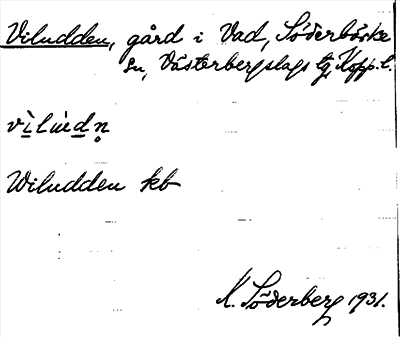 Viludden, gård i Vad, Söderbärke
sn, Västerbergslags tg, Kopp. l.
vìlùdn̥
Wiludden kb
K. Söderberg 1931.